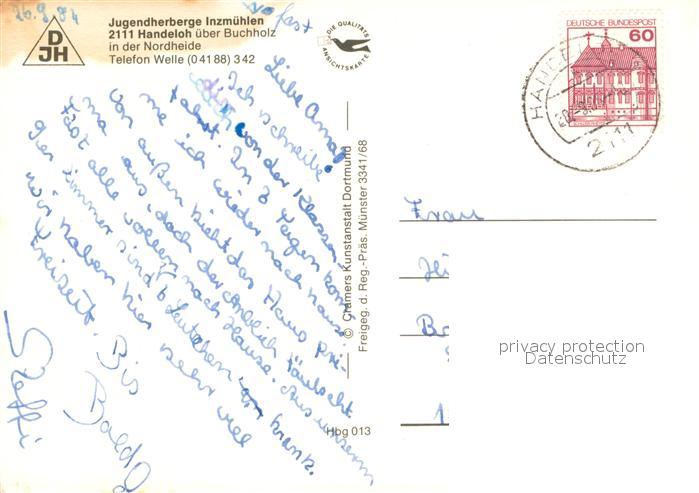 26.9.84
DJH
Jugendherberge Inzmühlen
2111 Handeloh über Buchholz
in der Nordheide
Telefon Welle (0 41 88) 3 42
DIE QUALITÄTS
ANSICHTSKARTE
DEUTSCHE BUNDESPOST
60
HANDEL
2111
fast
Liebe Oma!
Ich schreibe
dir von der Klassen
fahrt. In 3 Tagen kom
me ich wieder nach Haus.
Von außen sieht das Haus pri
ma aus, doch der Anblick täuscht.
Fast alle wollen nach Hause. Aus unserem
Zimmer sind 6 Leutchen krank.
Wir haben hier sehr viel
Freizeit.
Bis
Bald
Steffi
© Cramers Kunstanstalt Dortmund
Freigeg. d. Reg.-Präs. Münster 3341/68
Hbg 013
Frau
privacy protection
Datenschutz